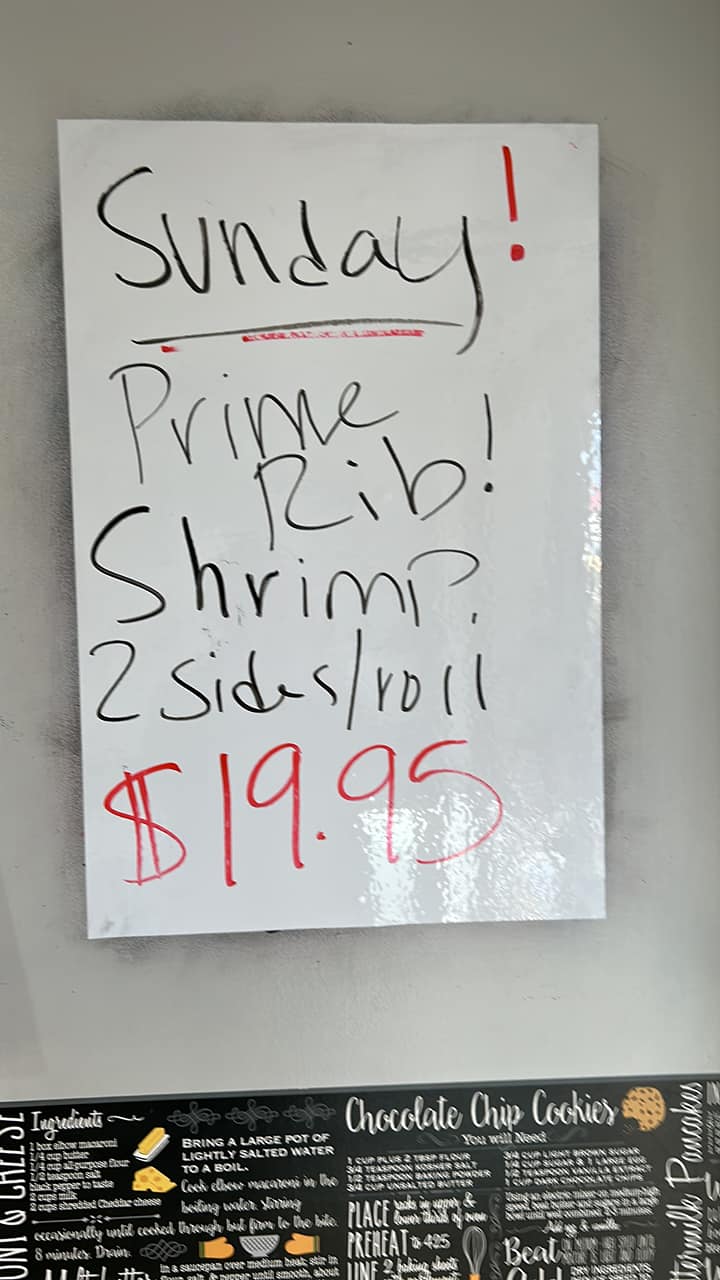 Sunday!
Prime
Rib!
Shrimp.
2 sides/roll
$19.95
Ingredients
1 box elbow macaroni
1/4 cup butter
1/4 cup all-purpose flour
1/2 teaspoon salt
black pepper to taste
2 cups milk
2 cups shredded Cheddar cheese
BRING A LARGE POT OF
LIGHTLY SALTED WATER
TO A BOIL.
Cook elbow macaroni in the
boiling water, stirring
occasionally until cooked through but firm to the bite,
8 minutes. Drain.
In a saucepan over medium heat; stir in
Chocolate Chip Cookies
You will Need
1 CUP PLUS 2 TBSP FLOUR
3/4 TEASPOON KOSHER SALT
1/2 TEASPOON BAKING POWDER
3/4 CUP UNSALTED BUTTER
3/4 CUP LIGHT BROWN SUGAR
PLACE racks in upper &
lower thirds of oven
PREHEAT to 425
LINE 2 baking sheets
Beat
DRY INGREDIENTS
Pancakes